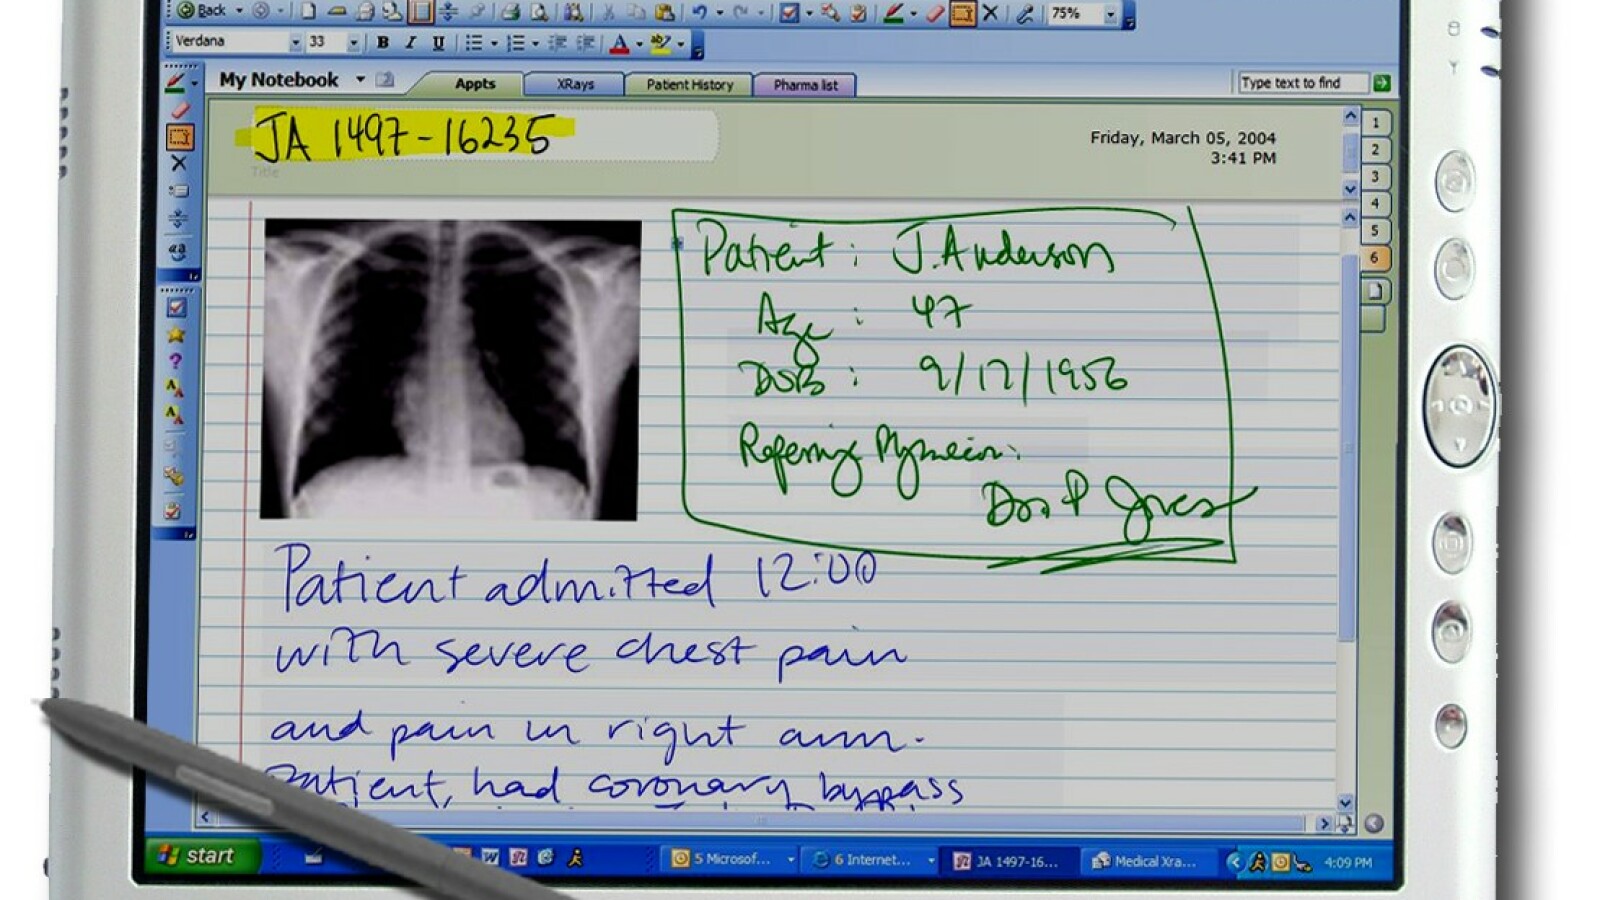 Back 75%
Verdana 33 B I U
My Notebook Appts XRays Patient History Pharma list Type text to find
JA 1497-16235
Title
Friday, March 05, 2004
3:41 PM
1
2
3
4
5
6
Patient: J. Anderson
Age: 47
DOB: 9/17/1956
Referring Physician:
Jones
Patient admitted 12:00
with severe chest pain
and pain in right arm.
Patient, had coronary bypass
start W 5 Microsof... 6 Internet... JA 1497-16... Medical Xra... 4:09 PM